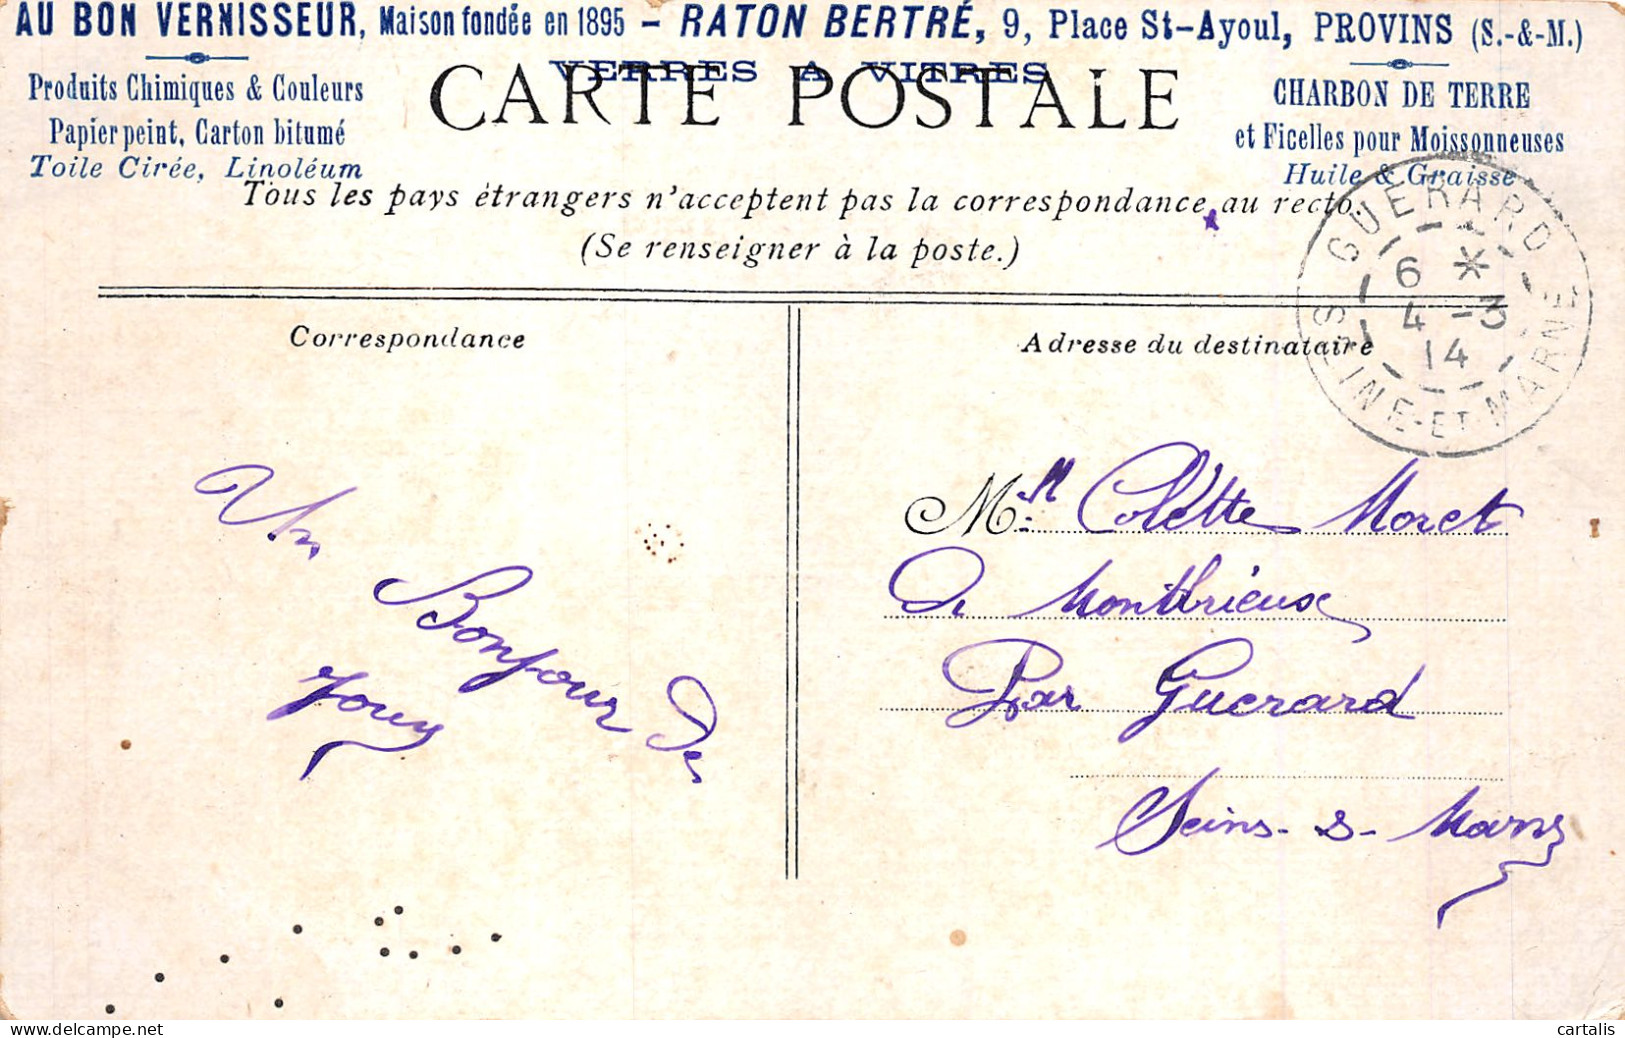 AU BON VERNISSEUR, Maison fondée en 1895 – RATON BERTRÉ, 9, Place St-Ayoul, PROVINS (S.-&-M.)
VERRES A VITRES
Produits Chimiques & Couleurs
Papier peint, Carton bitumé
Toile Cirée, Linoléum
CHARBON DE TERRE
et Ficelles pour Moissonneuses
Huile & Graisse
CARTE POSTALE
Tous les pays étrangers n'acceptent pas la correspondance au recto.
(Se renseigner à la poste.)
GUERARD
6 *
4 -3
14
SEINE-ET-MARNE
Correspondance
Adresse du destinataire
Un
Bonjour De
Jouy
Mlle Colette Moret
De Montbrieux
Par Guerard
Seine-&-Marne
delcampe.net
cartalis